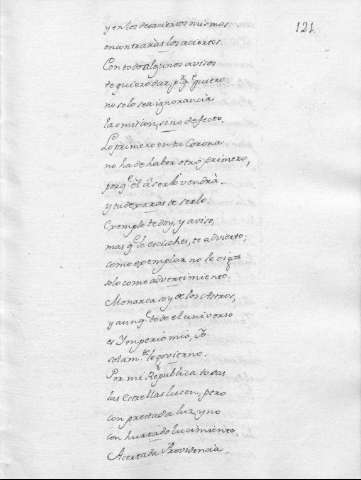 121
y en los desaciertos mismos
encontrarás los aciertos.
Con todo algunos avisos
te quiero dar, pq̃ quiero
no solo sea ignorancia
la omision, sino defecto.
Lo primero en tu Corona
no ha de haber otro primero,
porq̃ el á serlo vendrà
y tu dexarás de serlo.
Exemplo te doy, y aviso,
mas q̃ lo escuches, te advierto;
como exemplar no le oigas
solo como advertimiento.
Monarca soy de los Astros,
y aunq̃ todo el universo
es Ymperio mio, Yo
solamte. le govierno.
Por mi Republica todas
las Estrellas lucen, pero
con prestada luz, y no
con hurtado lucimiento.
Acertada Providencia,